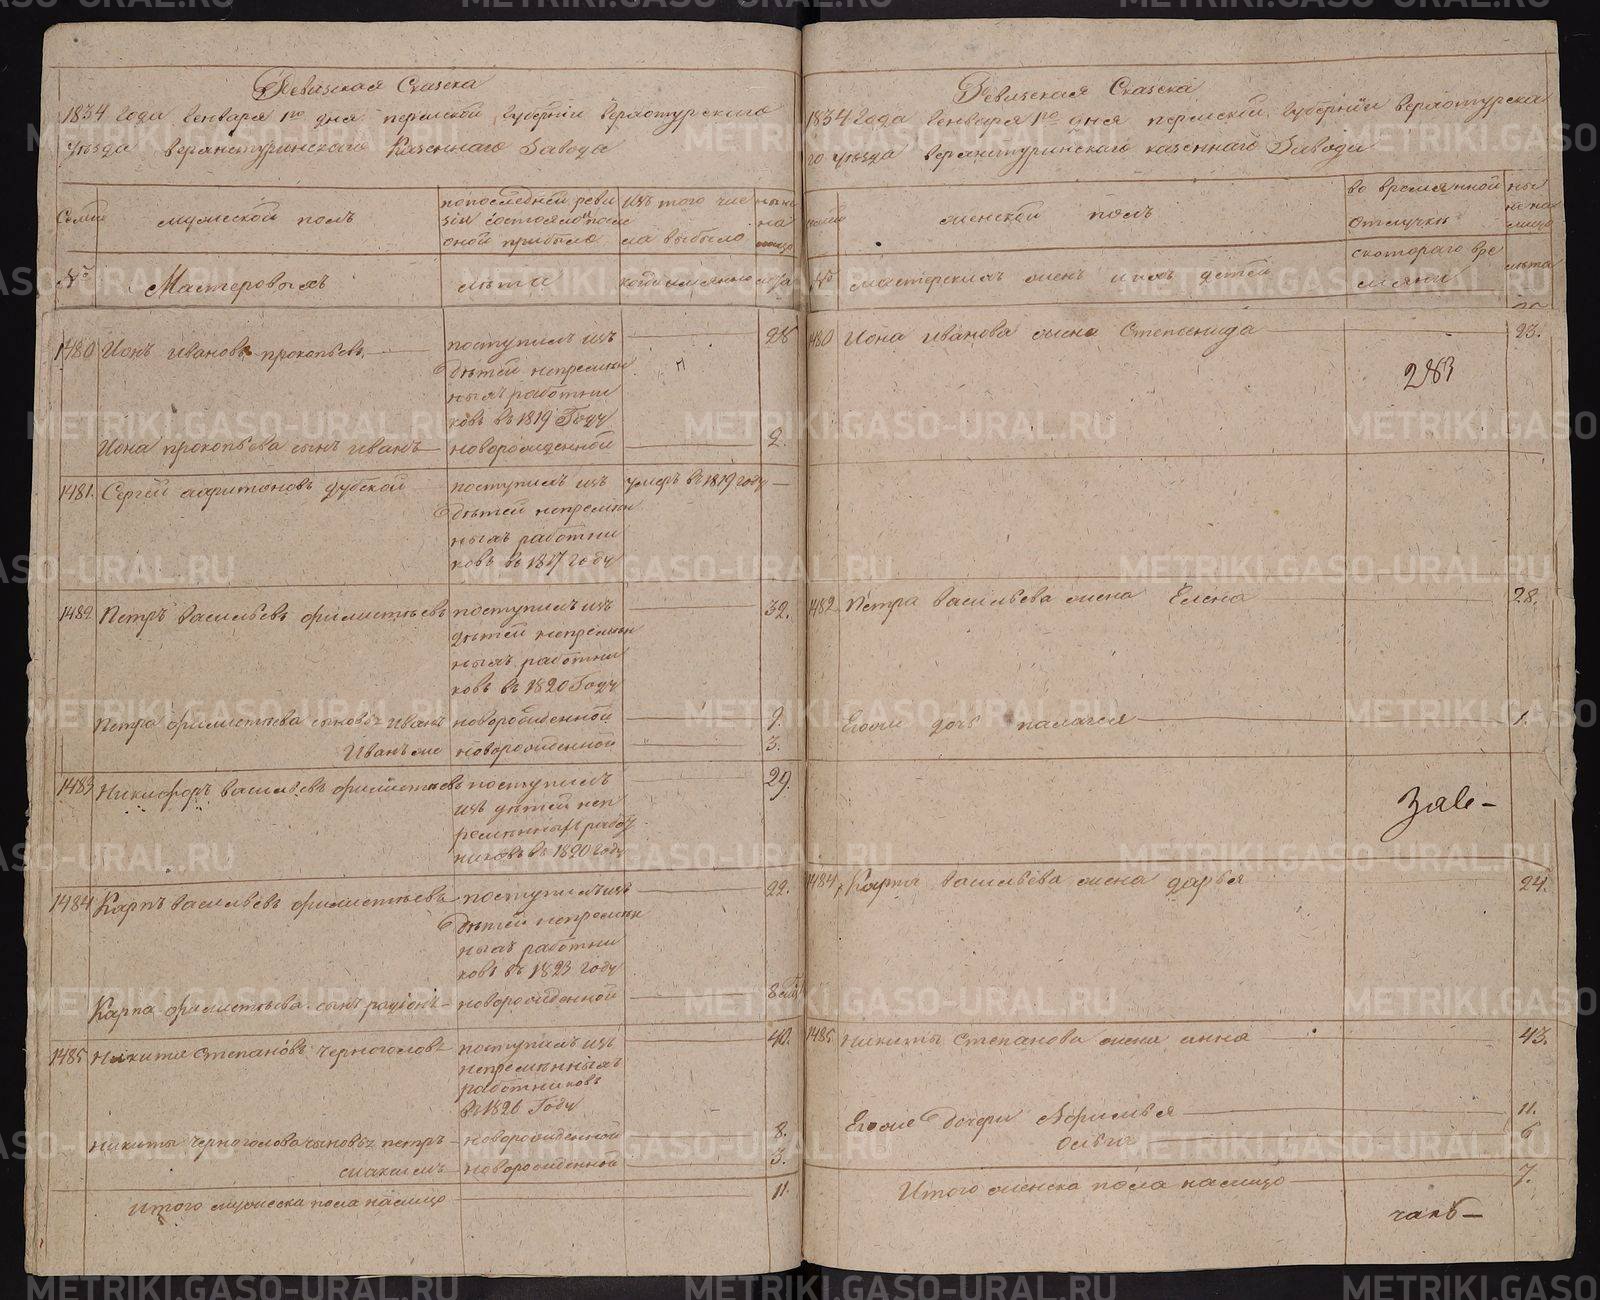 Ревизская Сказска
1834 Года Генваря 1го дня пермской Губернiи Верхотурскаго
уѣзда верхнетуринскаго Казеннаго Завода
Семьи
мужеской полъ
попоследней реви
зiи состояло ипосле
оной прибыло
изъ того чис
ла выбыло
ныне
на
лицо
№
Мастеровыхъ
лѣта
когда имянно
лѣта
1480 Ионъ Ивановъ прокопьевъ
поступилъ изъ
дѣтей непремѣн
ныхъ работни
ковъ въ 1819 Году
28
Иона прокопьева сынъ иванъ
новорожденной
2.
1481. Сергей харитоновъ дубской
поступилъ изъ
дѣтей непремѣн
ныхъ работни
ковъ въ 1817 году
умеръ въ 1819 году
1482 Петръ васильевъ филистѣевъ
поступилъ изъ
дѣтей непремѣн
ныхъ работни
ковъ въ 1820 Году
32.
Петра филистѣева сыновья иванъ
новорожденной
9.
Иванъ же
новорожденной
3.
1483 Никифоръ васильевъ филистѣевъ
поступилъ
изъ дѣтей неп
ремѣнныхъ работ
никовъ въ 1820 году
29.
1484 Карпъ васильевъ филистѣевъ
поступилъ изъ
дѣтей непремѣн
ныхъ работни
ковъ въ 1823 году
22.
Карпа филистѣева сынъ родiонъ
новорожденной
8
1485 Никита степановъ черноголовъ
поступилъ изъ
непремѣнныхъ
работниковъ
въ 1826 Году
40.
Никиты черноголова сыновья петръ
новорожденной
8.
максимъ
новорожденной
3.
Итого мужеска пола налицо
11.
Ревизская Сказска
1834 Года Генваря 1го дня пермской Губернiи верхотурска
го уѣзда верхнетуринскаго казеннаго Завода
семьи
женской полъ
во временной
отлучке
ны
не на
лицо
№
мастерскихъ женъ ихъ детей
скотораго вре
мяни
лѣта
1480 Иона иванова жена Степанида
23.
283
1482 Петра васильева жена Елена
28.
Егоже дочь палагея
1.
Заве-
1484 Карпа васильева жена дарья
24.
1485 Никиты степанова жена анна
43.
Егоже дочери Афимья
11.
ольга
6
Итого женска пола налицо
7.